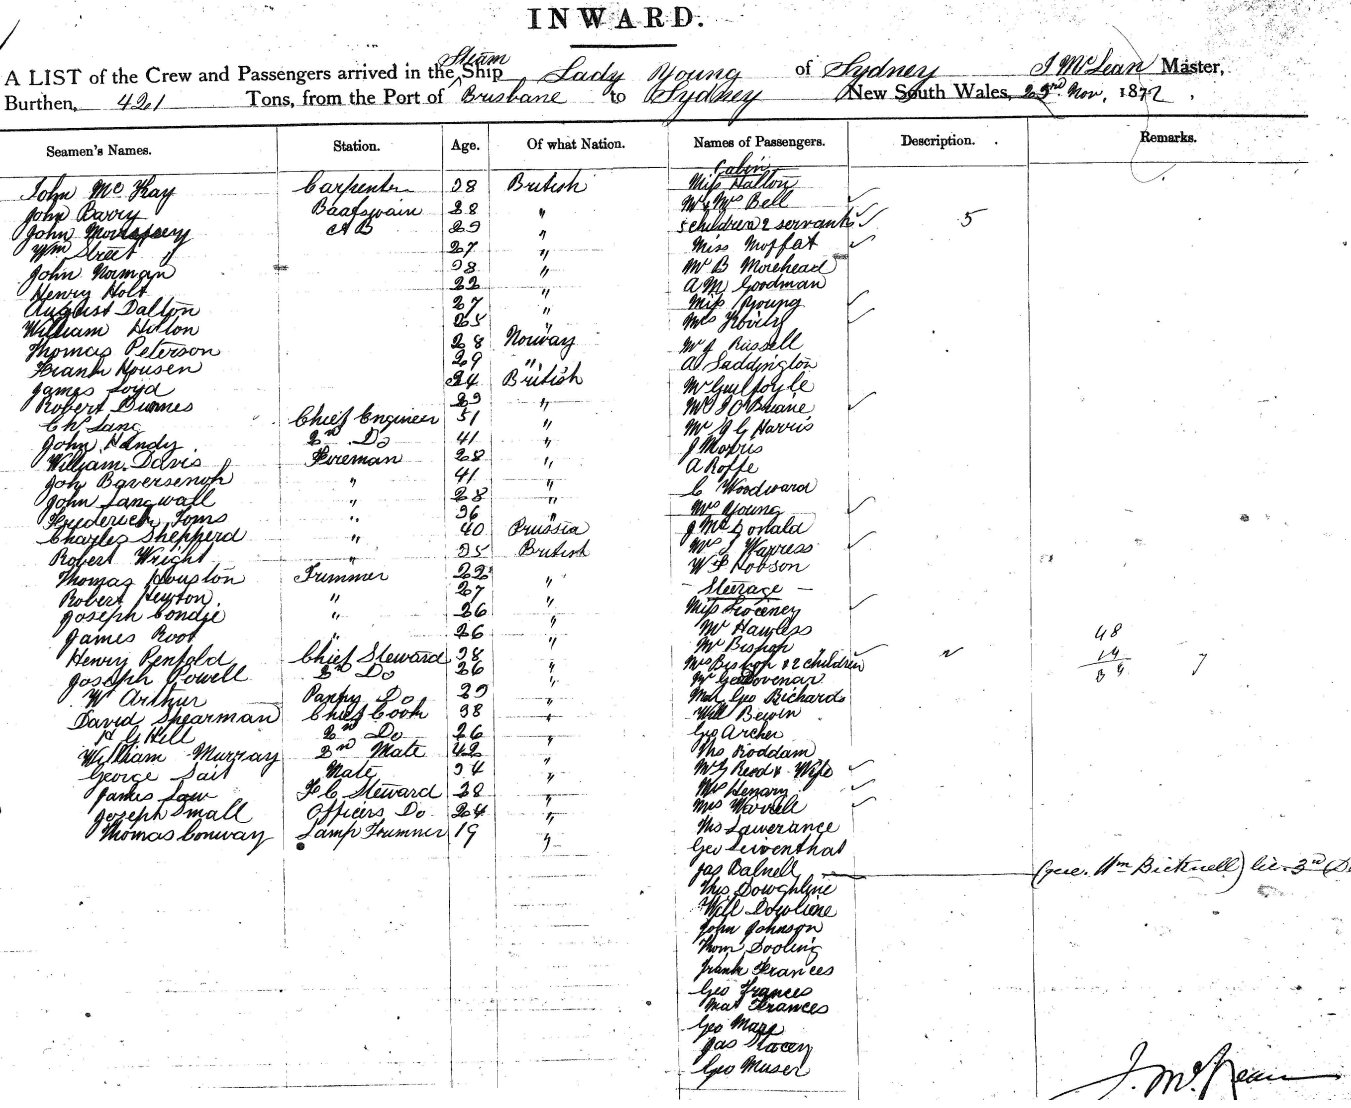 INWARD.
A LIST of the Crew and Passengers arrived in the Steam Ship Lady Young of Sydney J McLean Master,
Burthen, 421 Tons, from the Port of Brisbane to Sydney New South Wales, 23rd Nov, 1872,
Seamen's Names. Station. Age. Of what Nation. Names of Passengers. Description. Remarks.
Cabin
John Mc Kay Carpenter 38 British Miss Hatton
John Barry Boatswain 28 " Mr & Mrs Bell
John A B 29 " 5 children 2 servants 5
Wm Street 27 " Miss Moffat
John Norman 38 " Mr B Morehead
Henry Holt 22 " A M Goodman
August Dalton 27 " Miss Young
William Hilton 25 " Mrs
Thomas Peterson 28 Norway Mr J Russell
Frank Housen 29 " A Saddington
James Loyd 24 British Mr Guilfoyle
Robert Dunnes 29 "
Chs Lang Chief Engineer 51 " Mr J G Harris
John Handy 2nd Do 41 " J Morris
William Davis Fireman 28 " A Roffe
Joh 41 " C Woodward
John Langwall " 28 " Mrs Young
Frederick Toms " 36 " J McDonald
Charles Shepperd " 40 Prussia Mrs
Robert Wright " 35 British W F Hobson
Thomas Houston Trimmer 22 " Steerage
Robert Newton " 27 " Miss
Joseph Condie " 26 " Mr Hawless
James Root " 26 " Mr Bishop 48
Henry Penfold Chief Steward 38 " Mrs Bishop & 2 children 2 14
Joseph Powell 2nd Do 26 " Mr Geo 34 7
W Arthur Pantry Do 29 " Geo Bichards
David Spearman Chief Cook 38 " Will Bewin
H G Hill 2nd Do 26 " Geo Archer
William Murray 2nd Mate 42 " Ths Roddam
George Sait Mate 34 " Mr J Reed & Wife
James Law F C Steward 28 " Mrs Henary
Joseph Small Officers Do 24 " Mrs Warrell
Thomas Conway Lamp Trimmer 19 " Ths Lawerance
Geo Leiventhal
Jas Balnell (gec. Wm Bicknell) lic. 3rd
Ths Doughline
Will Dowline
John Johnson
Thom Dooling
Frank Frances
Geo Frances
Mat Frances
Geo Marp
Jas Stacey
Geo Muser
J. McLean